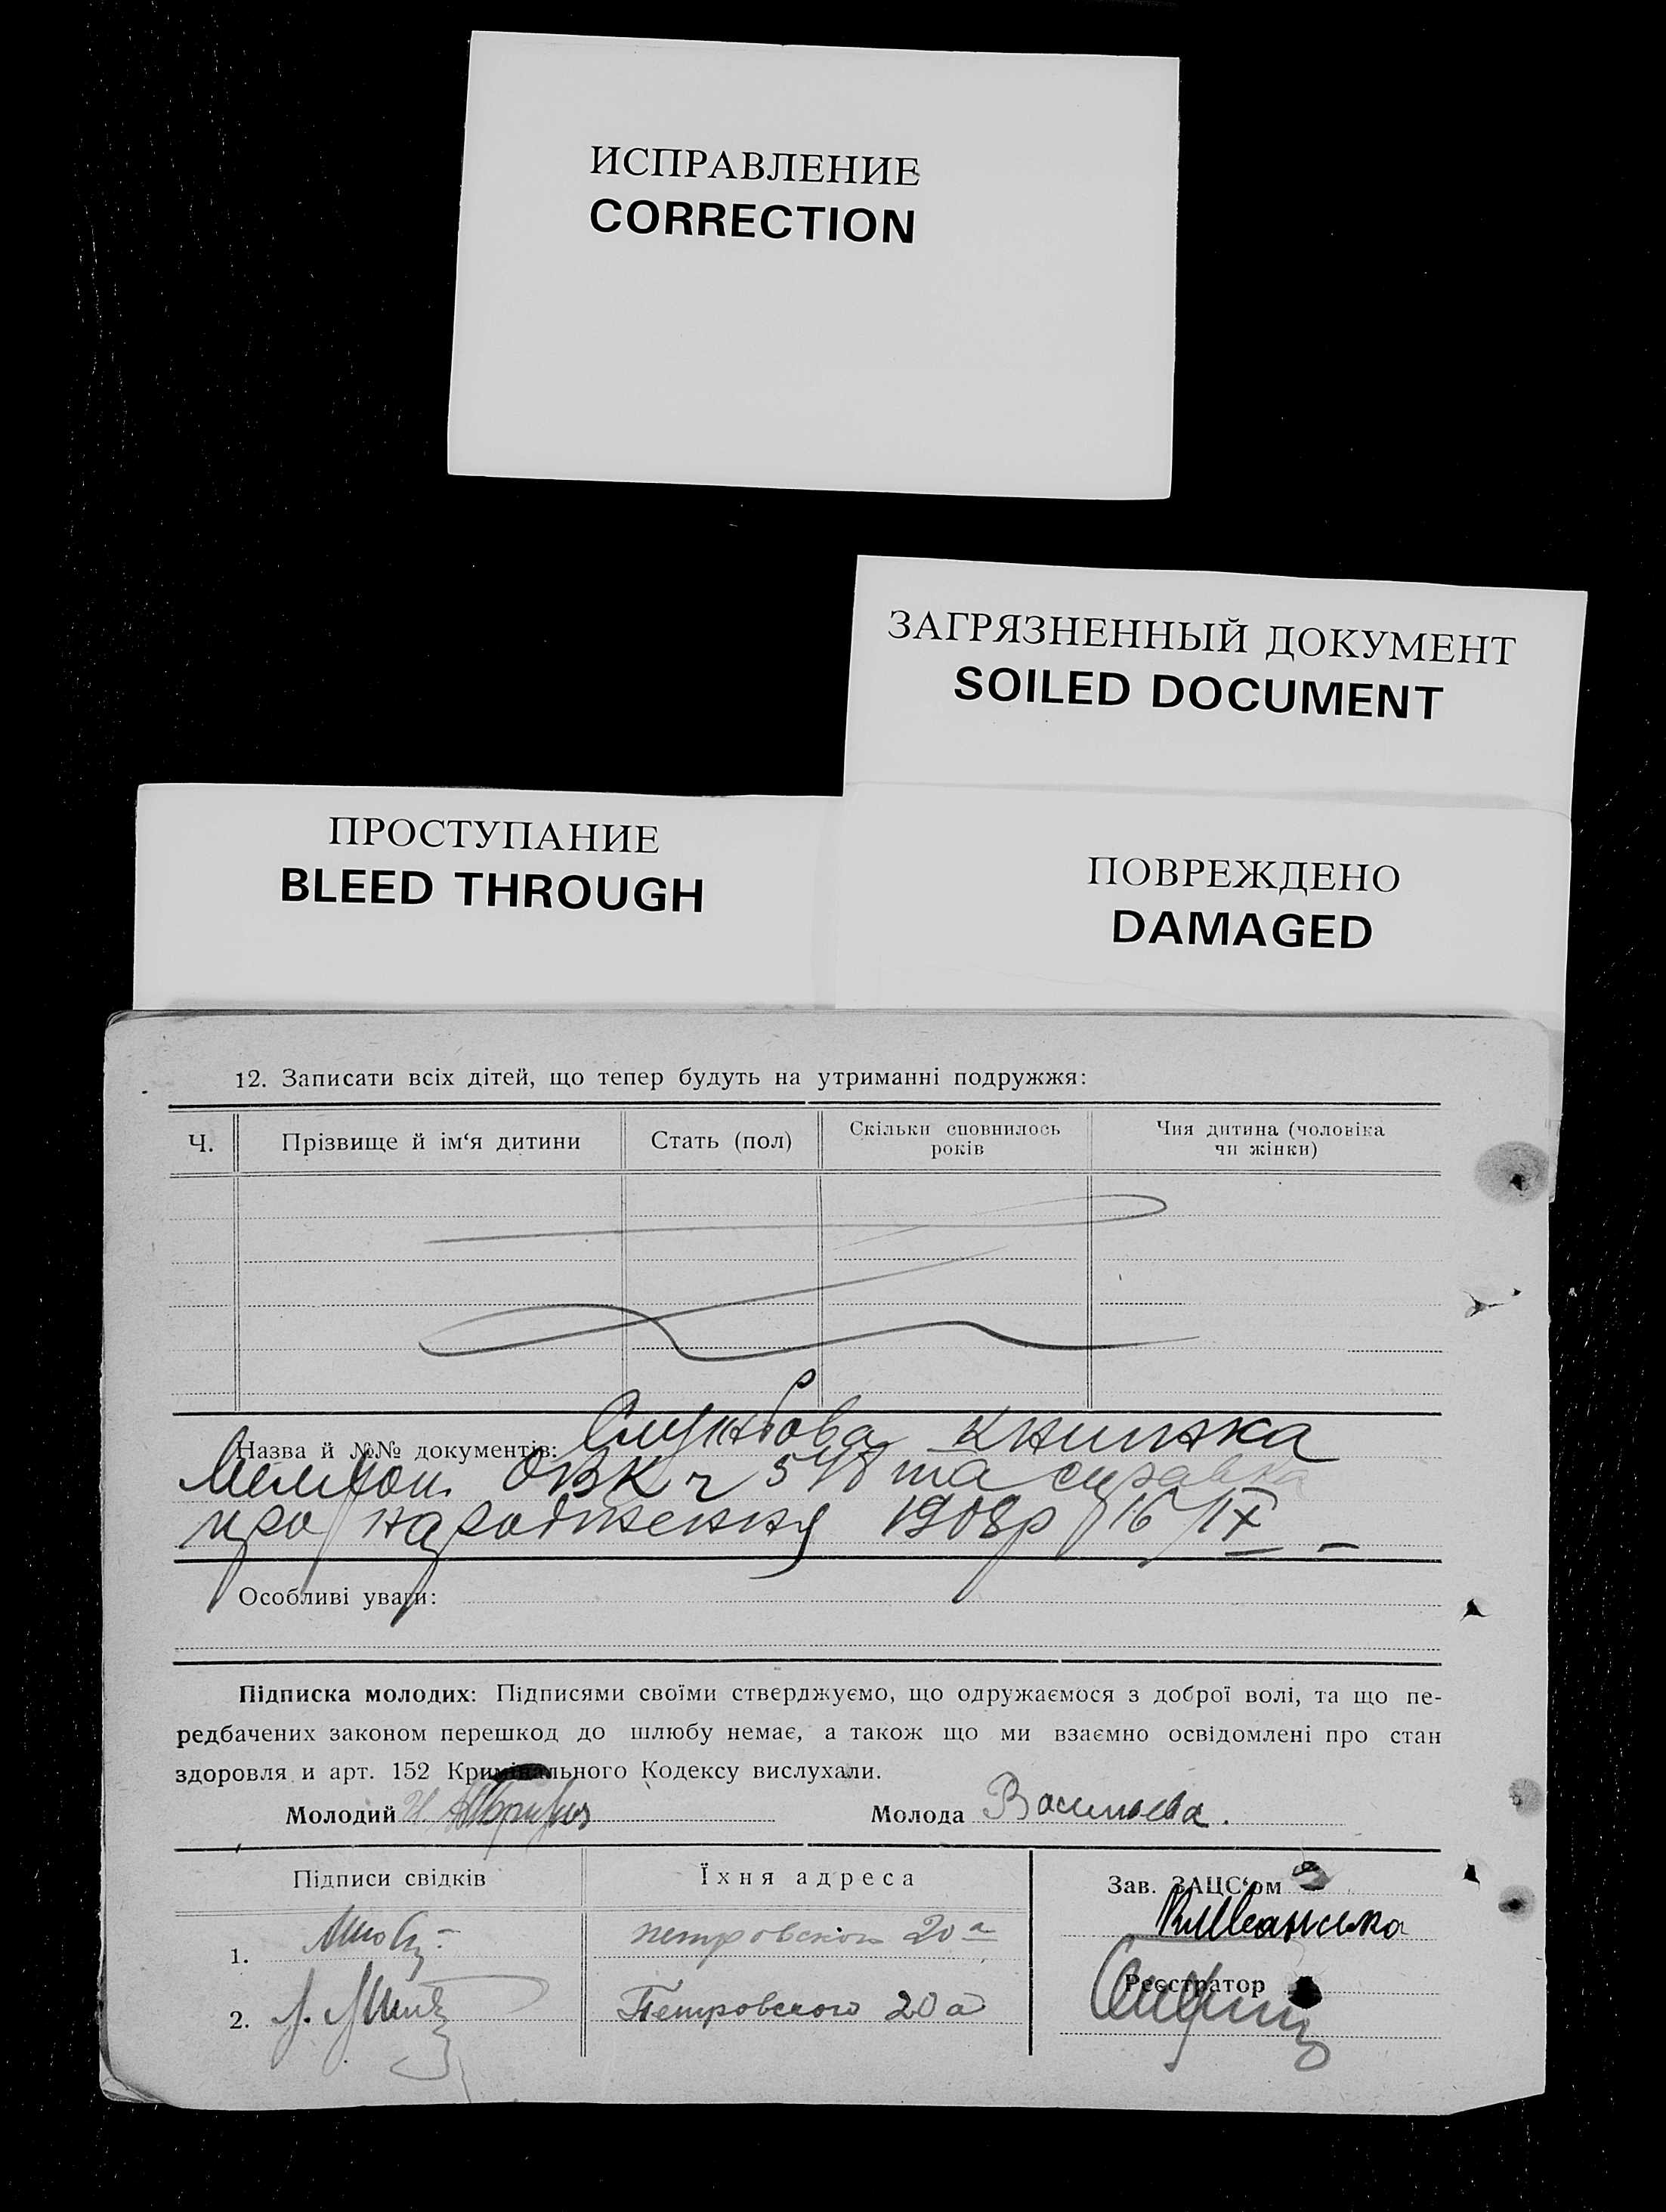 ИСПРАВЛЕНИЕ
CORRECTION
ЗАГРЯЗНЕННЫЙ ДОКУМЕНТ
SOILED DOCUMENT
ПРОСТУПАНИЕ
BLEED THROUGH
ПОВРЕЖДЕНО
DAMAGED
12. Записати всіх дітей, що тепер будуть на утриманні подружжя:
Ч. Прізвище й ім‘я дитини Стать (пол) Скільки сповнилось років Чия дитина (чоловіка чи жінки)
Назва й №№ документів: Службова книжка
ОВК ч 548 та справка
про народження 1908р 16/IX
Особливі уваги:
Підписка молодих: Підписями своїми стверджуємо, що одружаємося з доброї волі, та що пе-
редбачених законом перешкод до шлюбу немає, а також що ми взаємно освідомлені про стан
здоровля и арт. 152 Кримінального Кодексу вислухали.
Молодий Молода Васильева.
Підписи свідків Їхня адреса Зав. ЗАЦС‘ом
1. Петровского 20а
Реєстратор
2. Петровского 20а